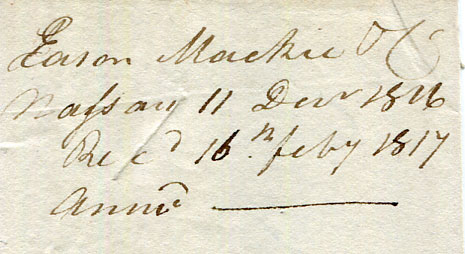 Eason Mackie & Co
Nassau 11 Decr 1816
Recd 16th feby 1817
Answd